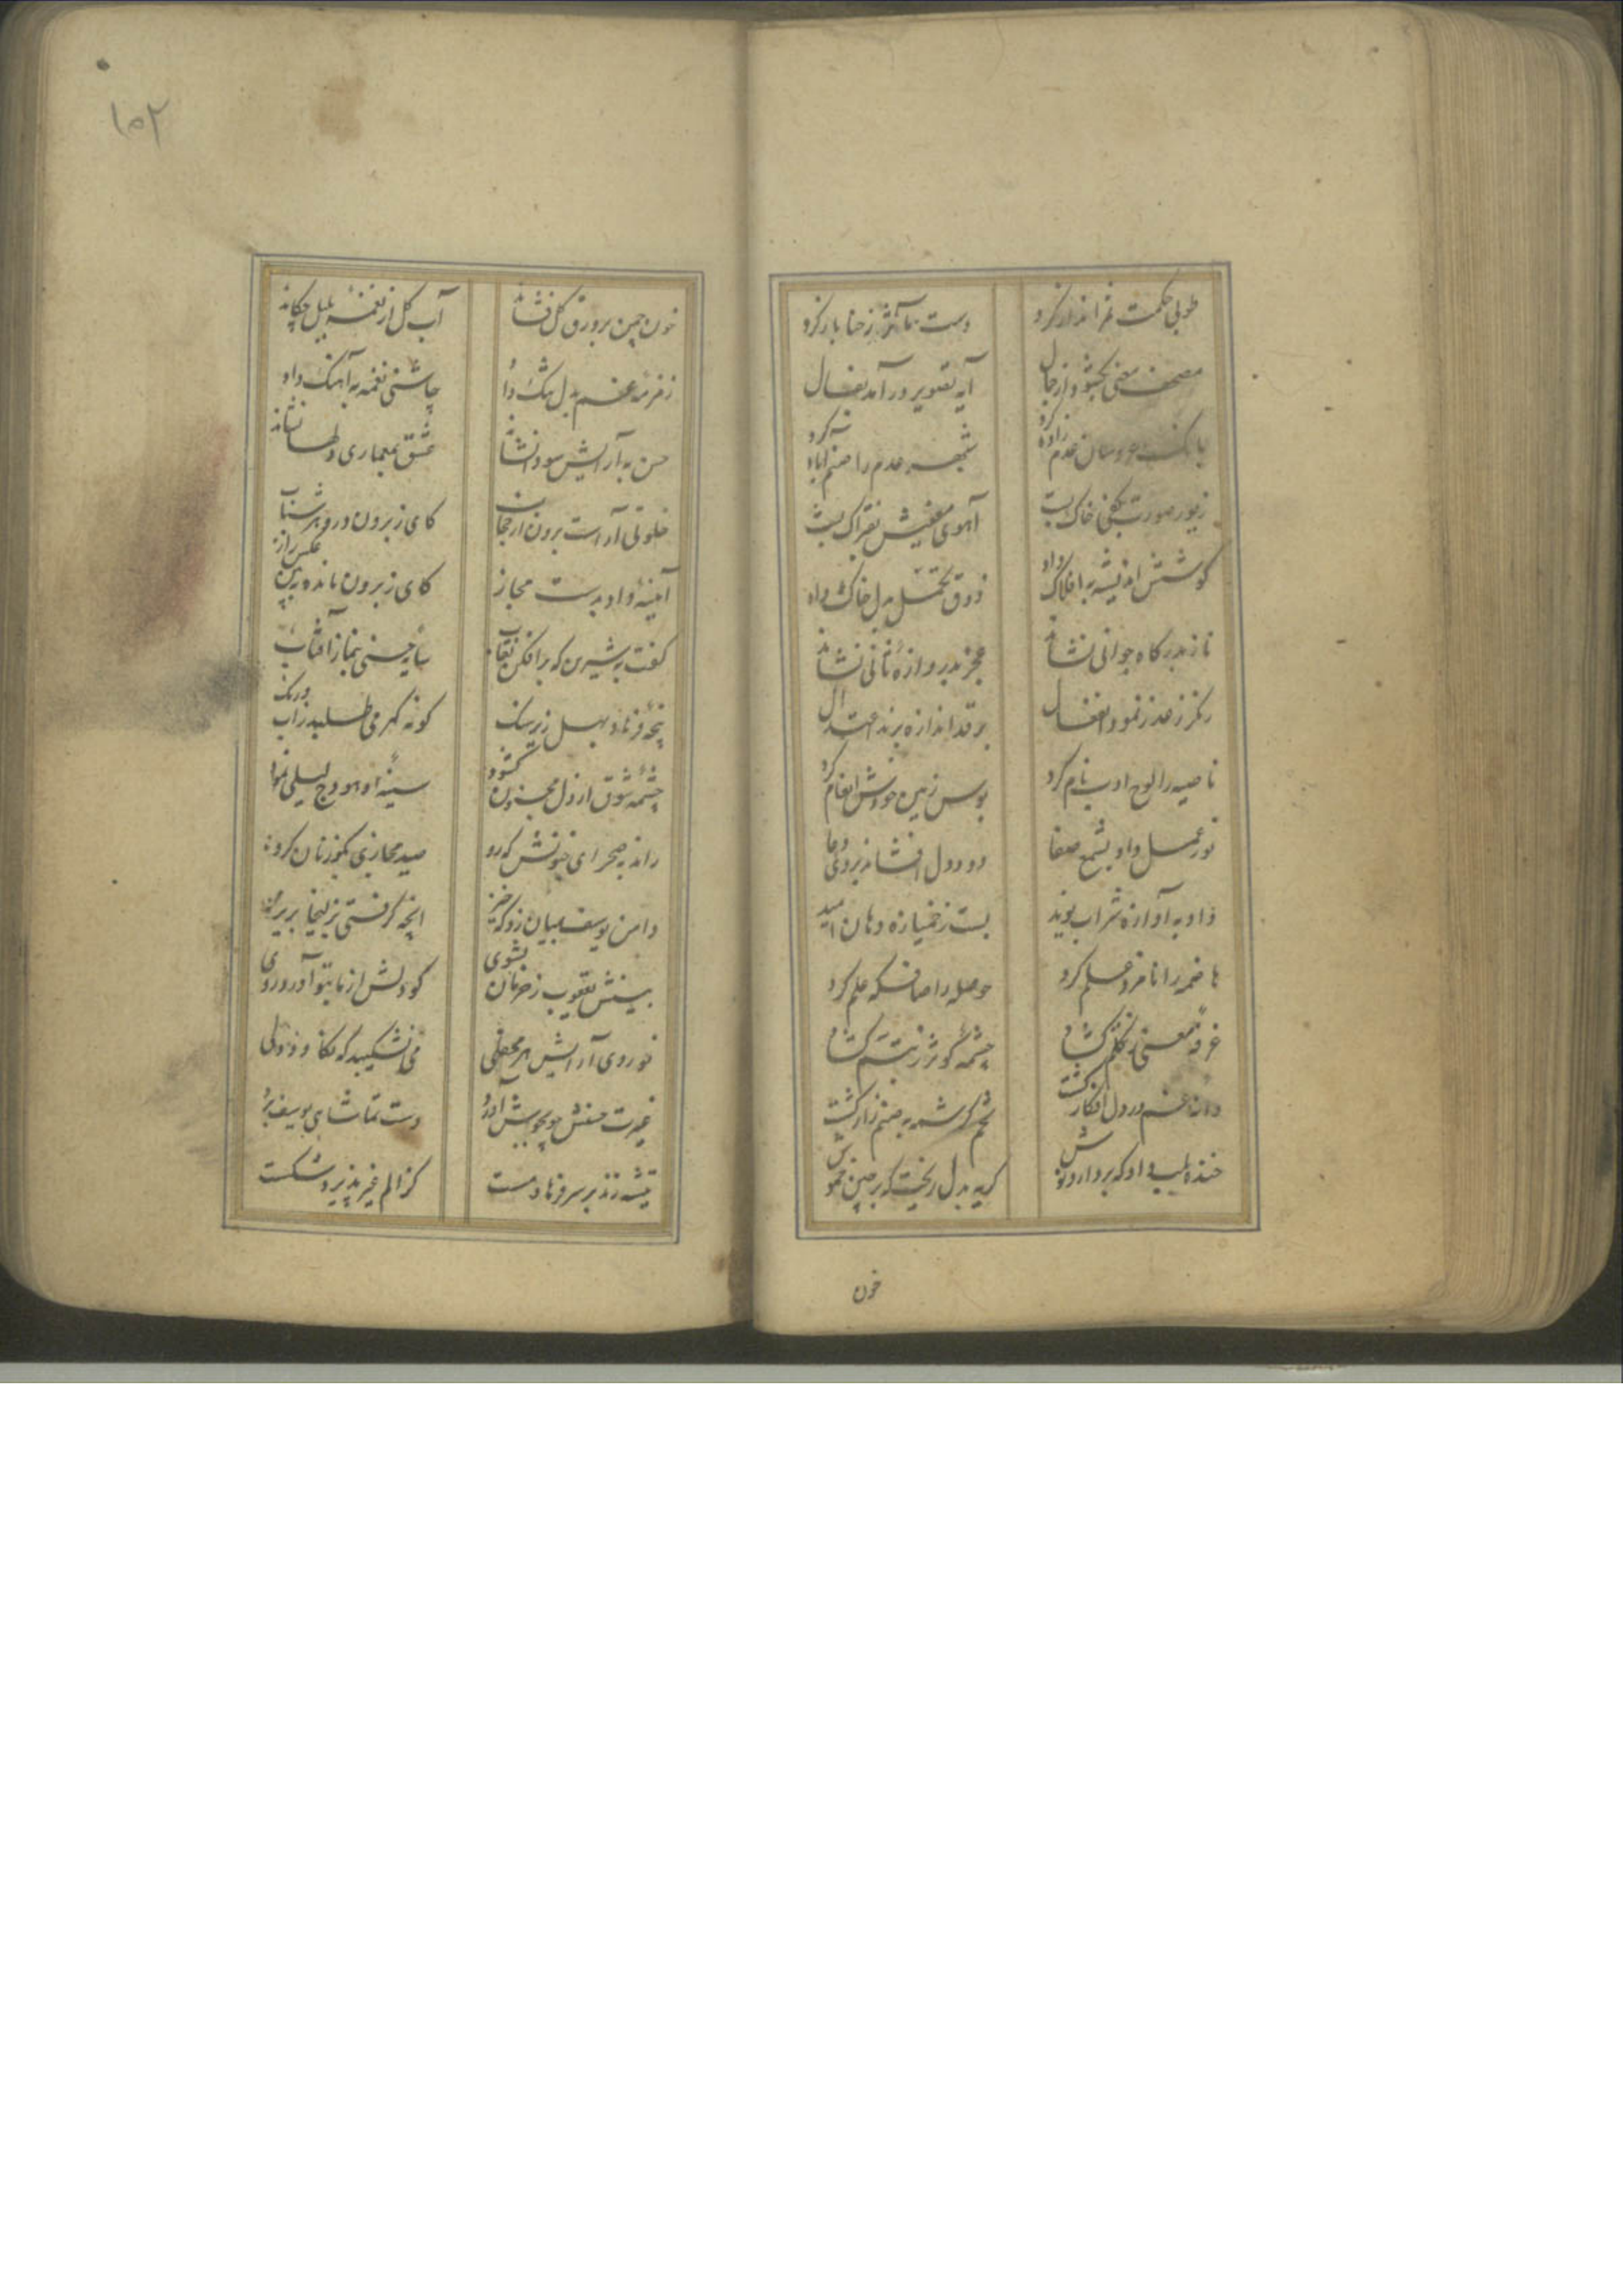 طوبی حکمت ثمر انداز کرد
دست تماثر ز حنا باز کرد
مصحف معنی بکشود از جمال
آیه تصویر درآمد بفال
بانک عروسان عدم زاده کرد
شهر عدم را صنم آباد کرد
زیور صورت بکف خاک بست
آهوی معنیش بفتراک بست
کوشش اندیشه بافلاک داد
ذوق تحمل بدل خاک داد
ناز بدرگاه جوانی نشاند
عجز بدروازه نشاند
بر قد اندازه برید اعتدال
ناصیه را لوح ادب نام کرد
بوس زمین خودش انعام کرد
نور عمل داد بشمع صفا
دود دل افشاند بروی دعا
داد به آوازه شراب نوید
بست ز خمیازه دهان امید
هاضمه را نامزد حلم کرد
حوصله را صافکه علم کرد
غرفه معنی ز تکلم گشاد
چشمه کوثر ز تبسم گشاد
دانه غم در دل افکار کشت
تخم کرشمه به صنم زار کشت
خنده بلب داد که بردار دوش
گریه بدل ریخت که بر چین خموش
خون
۱۵۲
خون چمن بر ورق گل فشاند
آب گل از نغمه بلبل چکاند
زمزمه غم بدل تنگ داد
چاشنی نغمه به آهنگ داد
حسن به آرایش سودا نشاند
عشق بمعماری دلها نشاند
خلوتی آراست برون از حجاب
کای ز برون در و بر شتاب
آینه داد بدست مجاز
کای ز برون مانده ببین عکس راز
گفت به شیرین که برافکن نقاب
سایه حسنی بنماز آفتاب
پنجه فرهاد بهل زیر سنگ
کو نه گهر می طلبد ز آب و رنگ
چشمه شوق از دل مجنون گشود
سینه او هودج لیلی نمود
راند به صحرای جنونش که رو
صید مجازی کن و زنان کرو
دامن یوسف بمیان زد که خیز
آنچه گرفتی ز زلیخا بریز
بینش یعقوب ز حرمان بشوی
کو دلش از ما بتو آورد روی
نوروی آرایش هر محفلی
می نشکیبد که نکاود دلی
غیرت حسنش چو بجوش آورد
دست تماشای یوسف برد
تیشه زند بر سر فرهاد مست
کز الم غیر پذیرد شکست